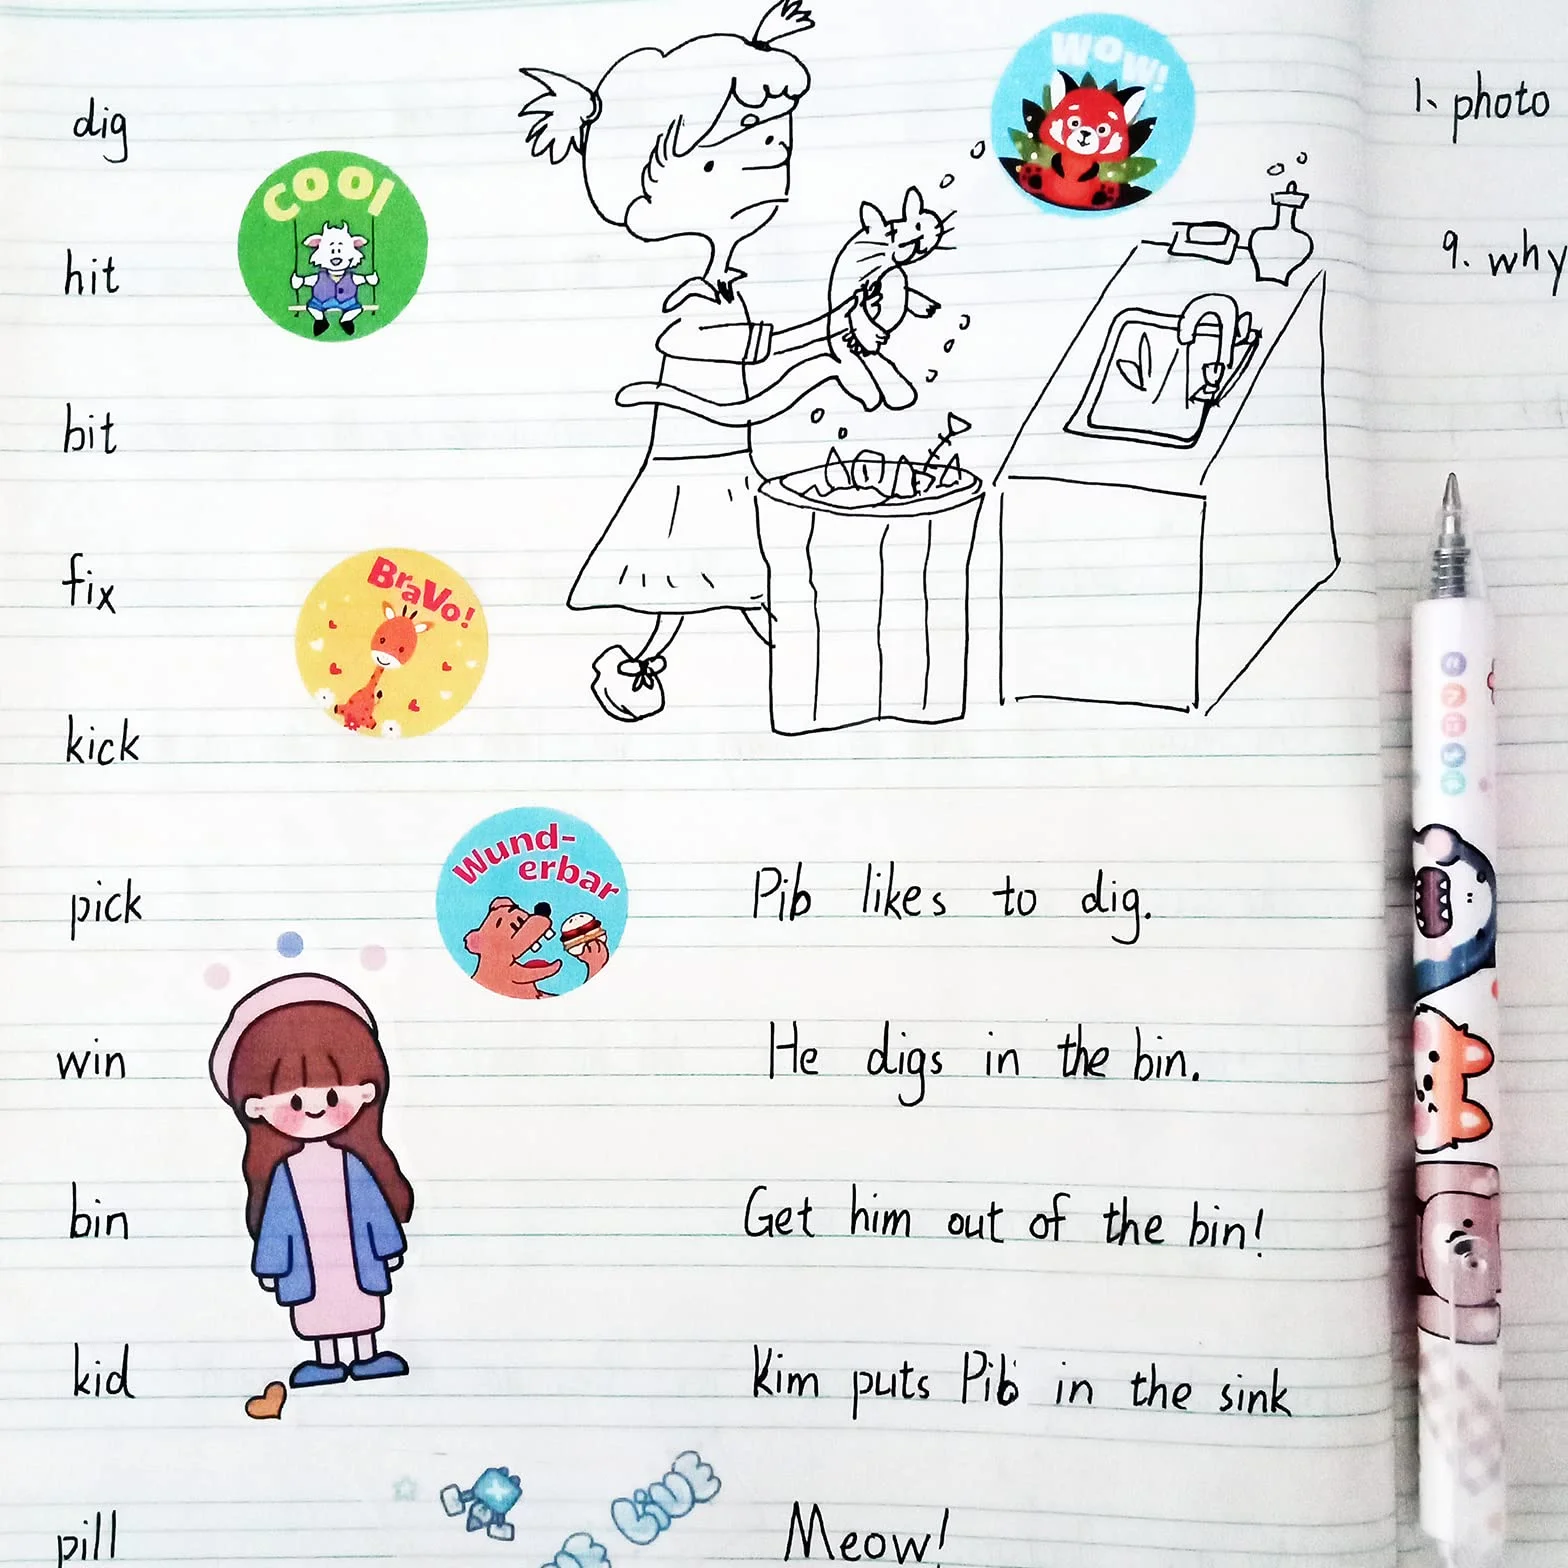 dig
hit
bit
fix
kick
pick
win
bin
kid
pill
COOl
BraVo!
Wund-
erbar
WOW!
Pib likes to dig.
He digs in the bin.
Get him out of the bin!
Kim puts Pib in the sink
Meow!
1. photo
9. why